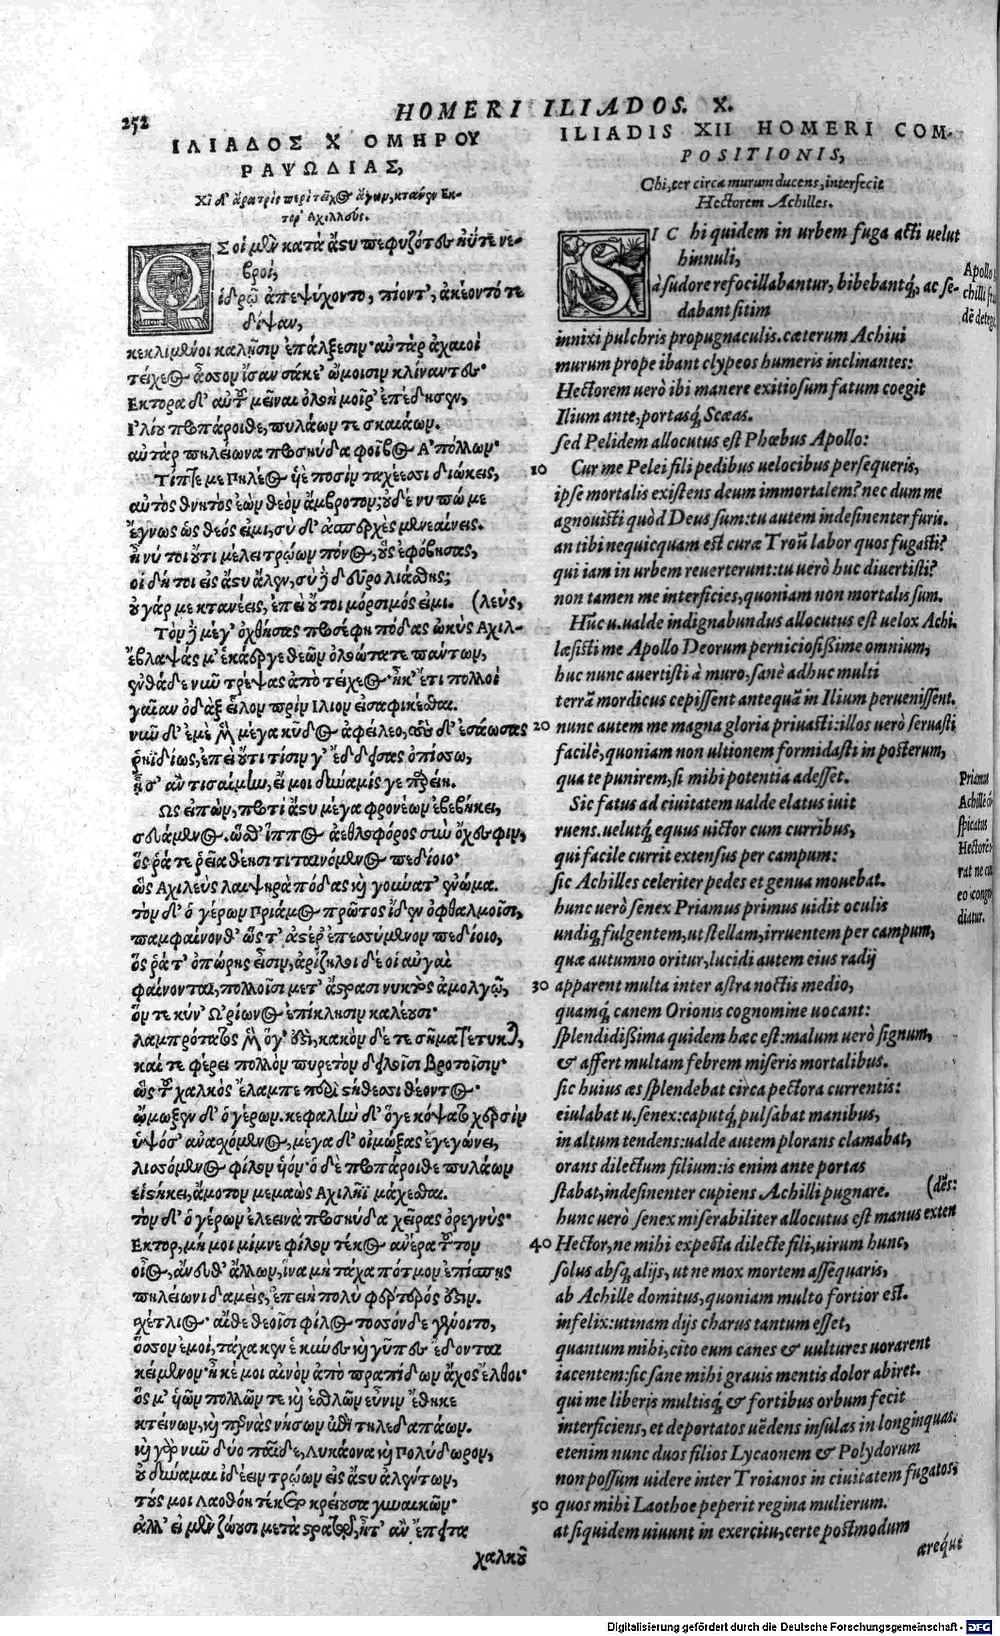 252
HOMERI ILIADOS. X.
ΙΛΙΑΔΟΣ Χ ΟΜΗΡΟΥ
ΡΑΨΩΔΙΑΣ,
Χῖ δ' ἄρα τρὶς περὶ τεῖχος ἄγων, κτάνεν Εκ-
τορ' Αχιλλεύς.
ΩΣ οἱ μὲν κατὰ ἄστυ πεφυζότες ἠΰτε νε-
βροὶ,
ἱδρῶ ἀπεψύχοντο, πίοντ', ἀκέοντό τε
δίψαν,
κεκλιμένοι καλῇσιν ἐπάλξεσιν· αὐτὰρ ἀχαιοὶ
τείχεος ἆσσον ἴσαν σάκε' ὤμοισιν κλίναντες·
Εκτορα δ' αὐτοῦ μεῖναι ὀλοὴ μοῖρ' ἐπέδησεν,
Ιλίου προπάροιθε, πυλάων τε σκαιάων.
αὐτὰρ πηλείωνα προσηύδα φοῖβος Ἀπόλλων·
Τίπτε με Πηλέος ὑὲ ποσὶν ταχέεσσι διώκεις,
αὐτὸς θνητὸς ἐὼν θεὸν ἄμβροτον; οὐδέ νυ πώ με
ἔγνως ὡς θεός εἰμι, σὺ δ' ἀσπερχὲς μενεαίνεις.
ἦ νύ τοι οὔτι μέλει τρώων πόνος, οὓς ἐφόβησας,
οἳ δή τοι εἰς ἄστυ ἄλεν, σὺ δὲ δεῦρο λιάσθης;
οὐ γάρ με κτανέεις, ἐπεὶ οὔτοι μόρσιμός εἰμι.
Τὸν δὲ μέγ' ὀχθήσας προσέφη πόδας ὠκὺς Αχιλ- (λεύς,
ἔβλαψάς μ' ἑκάεργε θεῶν ὀλοώτατε πάντων,
ἐνθάδε νῦν τρέψας ἀπὸ τείχεος· ἦ κ' ἔτι πολλοὶ
γαῖαν ὀδὰξ εἷλον πρὶν Ιλιον εἰσαφικέσθαι.
νῦν δ' ἐμὲ μὲν μέγα κῦδος ἀφείλεο, τοὺς δ' ἐσάωσας
ῥηϊδίως, ἐπεὶ οὔτι τίσιν γ' ἔδδεισας ὀπίσσω,
ἦ σ' ἂν τισαίμην, εἴ μοι δύναμίς γε παρείη.
Ως εἰπὼν, προτὶ ἄστυ μέγα φρονέων ἐβεβήκει,
σευάμενος, ὥσθ' ἵππος ἀεθλοφόρος σὺν ὄχεσφιν,
ὅς ῥά τε ῥεῖα θέησι τιταινόμενος πεδίοιο·
ὣς Αχιλεὺς λαιψηρὰ πόδας καὶ γούνατ' ἐνώμα.
τὸν δ' ὁ γέρων Πρίαμος πρῶτος ἴδεν ὀφθαλμοῖσι,
παμφαίνονθ' ὥς τ' ἀστέρ' ἐπεσσύμενον πεδίοιο,
ὅς ῥά τ' ὀπώρης εἶσιν, ἀρίζηλοι δέ οἱ αὐγαὶ
φαίνονται, πολλοῖσι μετ' ἄστρασι νυκτὸς ἀμολγῷ,
ὅν τε κύν' Ὠρίωνος ἐπίκλησιν καλέουσι·
λαμπρότατος μὲν ὅγ' ἐστὶ, κακὸν δέ τε σῆμα τέτυκται,
καί τε φέρει πολλὸν πυρετὸν δειλοῖσι βροτοῖσιν·
ὣς τοῦ χαλκὸς ἔλαμπε περὶ στήθεσσι θέοντος·
ᾤμωξεν δ' ὁ γέρων. κεφαλὴν δ' ὅγε κόψατο χερσὶν
ὑψόσ' ἀνασχόμενος, μέγα δ' οἰμώξας ἐγεγώνει,
λισσόμενος φίλον υἱόν· ὁ δὲ προπάροιθε πυλάων
εἱστήκει, ἄμοτον μεμαὼς Αχιλῆϊ μάχεσθαι.
τὸν δ' ὁ γέρων ἐλεεινὰ προσηύδα χεῖρας ὀρεγνύς·
Εκτορ, μή μοι μίμνε φίλον τέκος ἀνέρα τοῦτον
οἶος, ἄνευθ' ἄλλων, ἵνα μὴ τάχα πότμον ἐπίσπῃς
πηλείωνι δαμείς, ἐπειὴ πολὺ φέρτερός ἐστιν.
σχέτλιος· αἴθε θεοῖσι φίλος τοσσόνδε γένοιτο,
ὅσσον ἐμοὶ, τάχα κεν ἑ κύνες καὶ γῦπες ἔδονται
κείμενον· ἦ κέ μοι αἰνὸν ἀπὸ πραπίδων ἄχος ἔλθοι·
ὅς μ' υἱῶν πολλῶν τε καὶ ἐσθλῶν εὖνιν ἔθηκε
κτείνων, καὶ περνὰς νήσων ἐπὶ τηλεδαπάων.
καὶ γὰρ νῦν δύο παῖδε, Λυκάονα καὶ Πολύδωρον,
οὐ δύναμαι ἰδέειν τρώων εἰς ἄστυ ἀλέντων,
τούς μοι Λαοθόη τέκετο κρείουσα γυναικῶν·
ἀλλ' εἰ μὲν ζώουσι μετὰ στρατῷ, ἦτ' ἂν ἔπειτα
χαλκοῦ
ILIADIS XII HOMERI COM-
POSITIONIS,
Chi, ter circa murum ducens, interfecit
Hectorem Achilles.
SIC hi quidem in urbem fuga acti uelut
hinnuli,
à sudore refocillabantur, bibebantq́, ac se-
dabant sitim
innixi pulchris propugnaculis. cæterum Achiui
murum prope ibant clypeos humeris inclinantes:
Hectorem uerò ibi manere exitiosum fatum coegit
Ilium ante, portasq́ Scæas.
sed Pelidem allocutus est Phœbus Apollo:
10 Cur me Pelei fili pedibus uelocibus persequeris,
ipse mortalis existens deum immortalem? nec dum me
agnouisti quòd Deus sum: tu autem indesinenter furis.
an tibi nequicquam est curæ Troũ labor quos fugasti?
qui iam in urbem reuerterunt: tu uerò huc diuertisti?
non tamen me interficies, quoniam non mortalis sum.
Hũc u. ualde indignabundus allocutus est uelox Achi.
læsisti me Apollo Deorum perniciosissime omnium,
huc nunc auertisti à muro, sanè adhuc multi
terrã mordicus cepissent antequã in Ilium peruenissent.
20 nunc autem me magna gloria priuasti: illos uerò seruasti
facilè, quoniam non ultionem formidasti in posterum,
qua te punirem, si mihi potentia adesset.
Sic fatus ad ciuitatem ualde elatus iuit
ruens. uelutq́ equus uictor cum curribus,
qui facile currit extensus per campum:
sic Achilles celeriter pedes et genua mouebat.
hunc uerò senex Priamus primus uidit oculis
undiq; fulgentem, ut stellam, irruentem per campum,
quæ autumno oritur, lucidi autem eius radij
30 apparent multa inter astra noctis medio,
quamq́ canem Orionis cognomine uocant:
splendidissima quidem hæc est: malum uerò signum,
& affert multam febrem miseris mortalibus.
sic huius æs splendebat circa pectora currentis:
eiulabat u. senex: caputq́ pulsabat manibus,
in altum tendens: ualde autem plorans clamabat,
orans dilectum filium: is enim ante portas
stabat, indesinenter cupiens Achilli pugnare. (dẽs:
hunc uerò senex miserabiliter allocutus est manus exten
40 Hector, ne mihi expecta dilecte fili, uirum hunc,
solus absq; alijs, ut ne mox mortem assequaris,
ab Achille domitus, quoniam multo fortior est.
infelix: utinam dijs charus tantum esset,
quantum mihi, cito eum canes & uultures uorarent
iacentem: sic sane mihi grauis mentis dolor abiret.
qui me liberis multisq́ & fortibus orbum fecit
interficiens, et deportatos uẽdens insulas in longinquas.
etenim nunc duos filios Lycaonem & Polydorum
non possum uidere inter Troianos in ciuitatem fugatos,
50 quos mihi Laothoe peperit regina mulierum.
at siquidem uiuunt in exercitu, certe postmodum
æreq́ue
Apollo
chilli
dẽ deteg
Priamus
Achillẽ cõ
spicatus
Hectorẽ
rat ne cũ
eo congre
diatur.
Digitalisierung gefördert durch die Deutsche Forschungsgemeinschaft - DFG